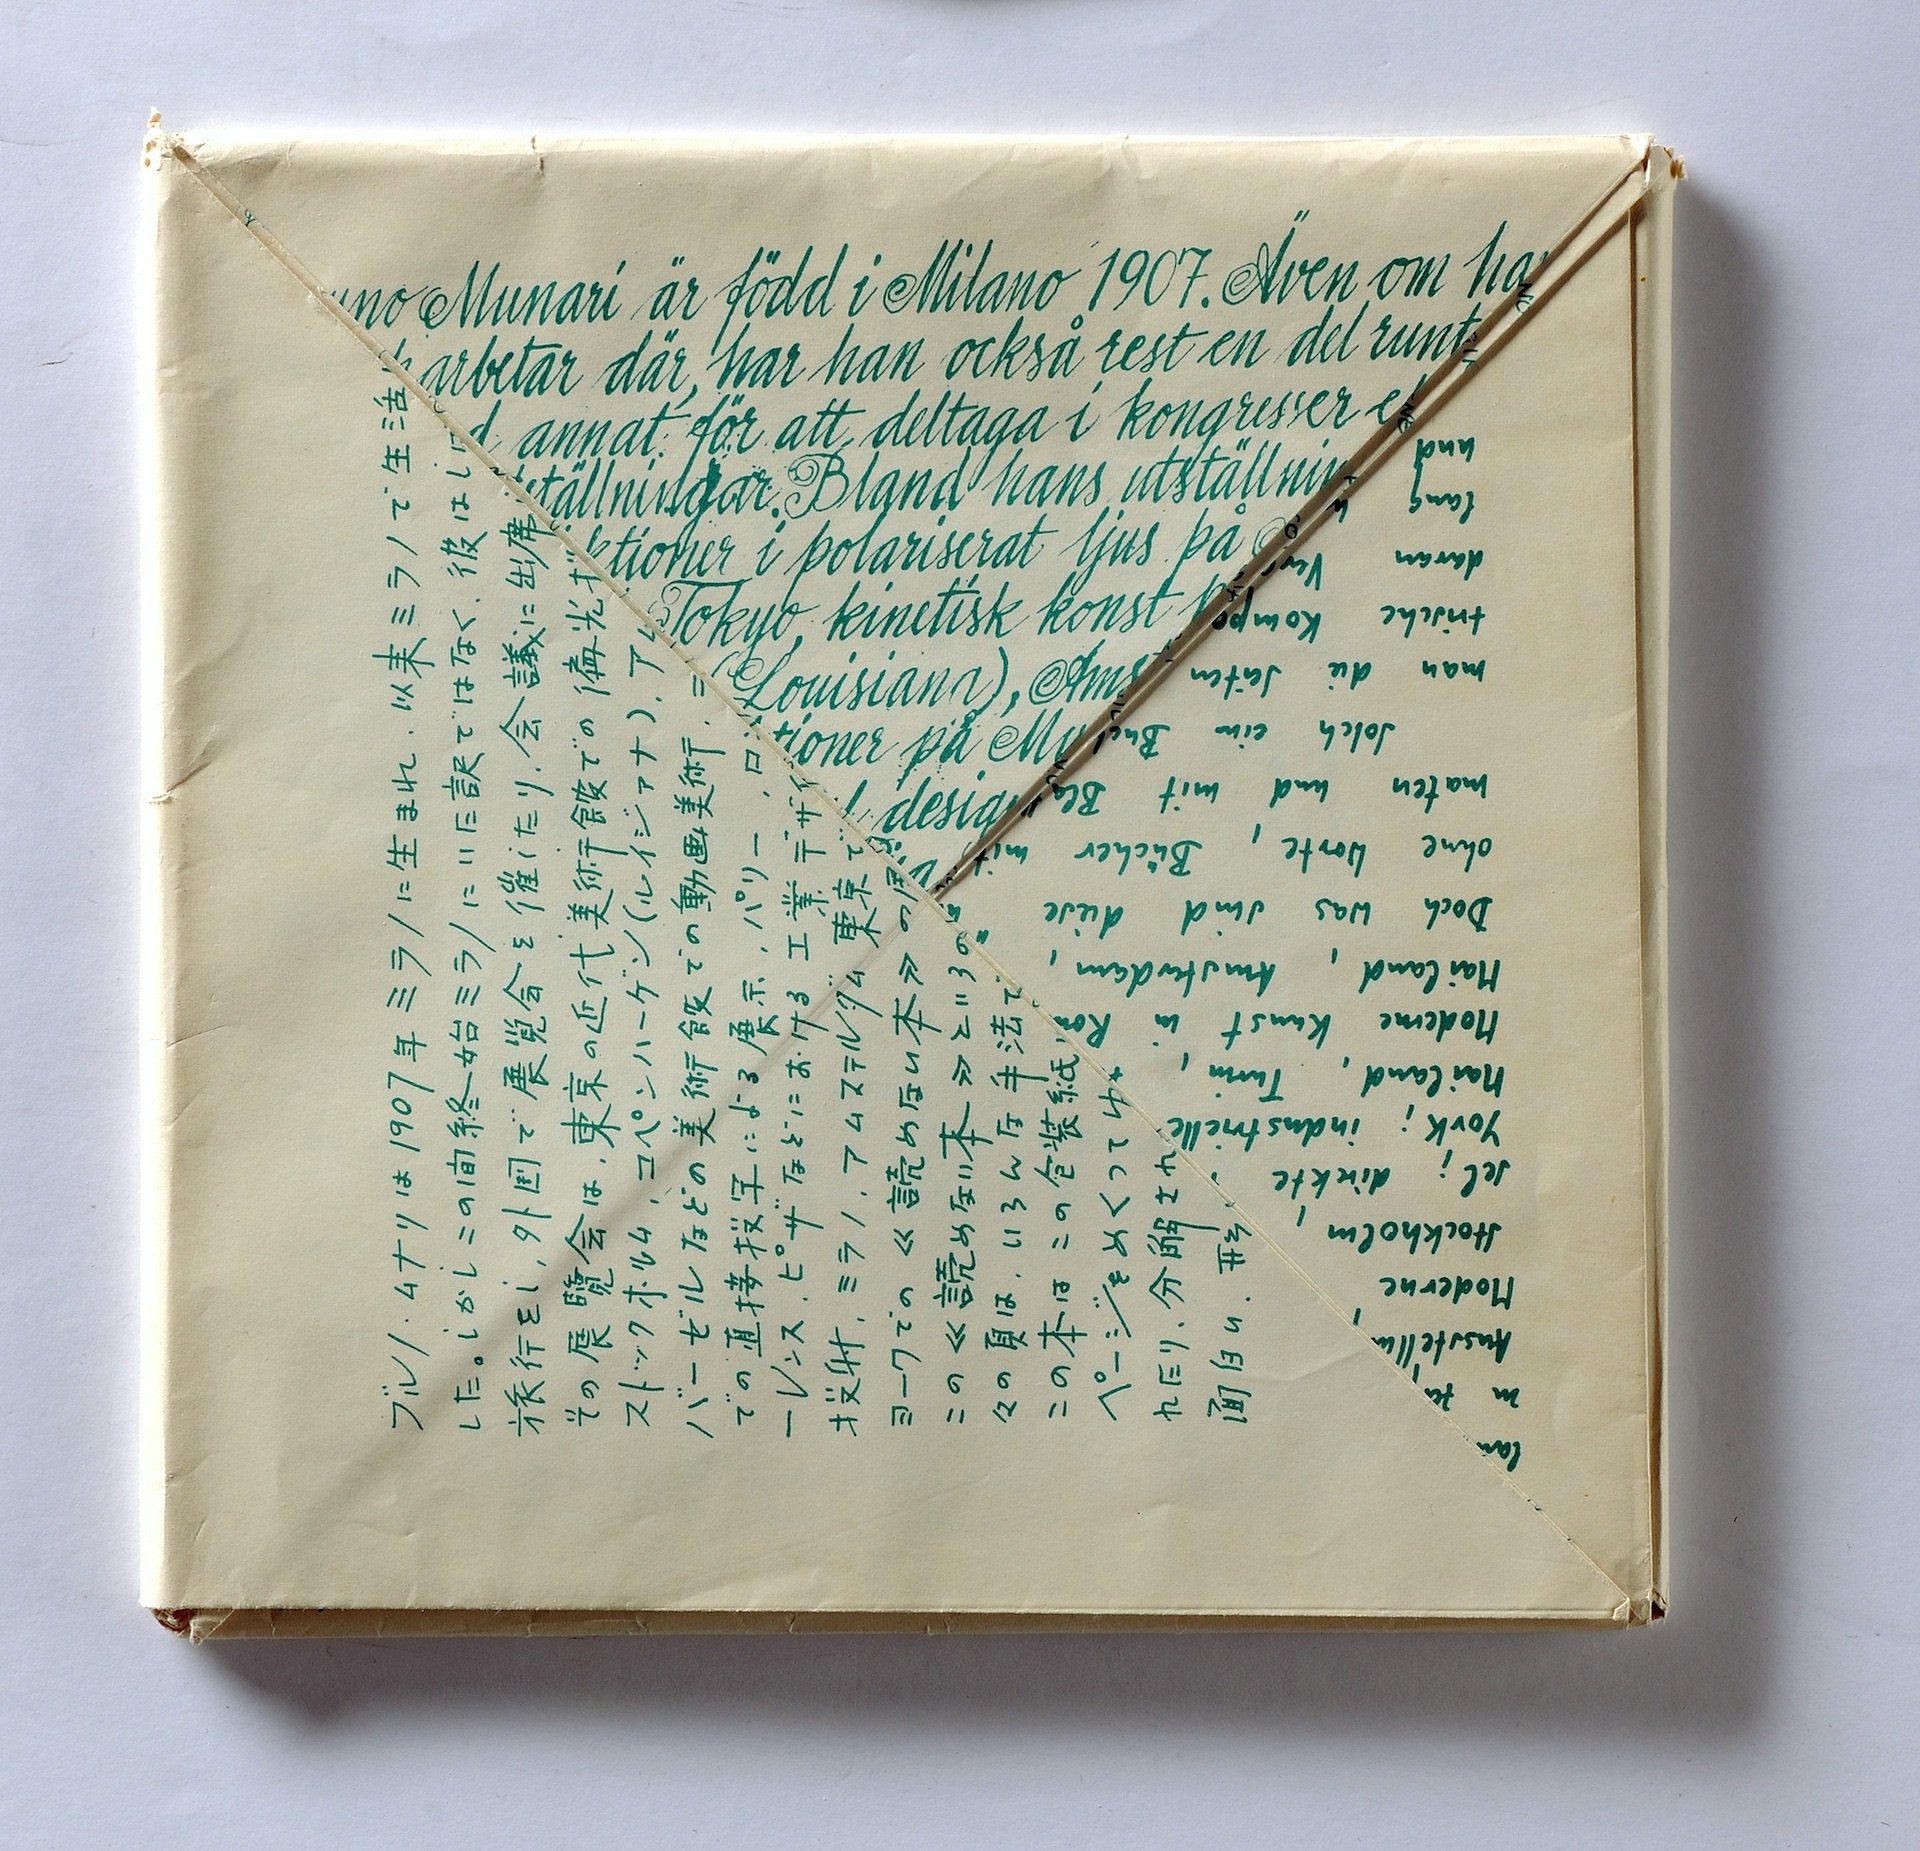 Munari är född i Milano 1907. Även om
arbetar där, har han också rest en del runt
annat för att deltaga i kongresser
ställningar. Bland hans utställnin
ktioner i polariserat ljus på
Tokyo, kinetisk konst
(Louisiana), Ams
tioner på Mu
design
ブルノ.ムナリは1907年ミラノに生まれ.以来ミラノで生活
した。しかしこの間終始ミラノにいた訳ではなく.彼はし
旅行をし,外国で展覧会を催したり.会議に出席
その展覧会は.東京の近代美術館での偏光
ストックホルム,コペンハーゲン(ルイジアナ).ア
バーゼルなどの美術館での動画美術.
での直接投写による展示.パリー.ロ
ーレンス.ピザなどにおける工業デザ
投射.ミラノ.アムステルダム 東京で
ヨークでの≪読めない本≫の
この≪読めない本≫という
々の頁は.いろんな手法で
この本はこの包装紙
ページをめくって
れたり.分解され
面白い.
lan
Ausstellun
Moderne
Stockholm,
sel; direkte
York; industrielle
Mailand, Turin,
Moderne Kunst in Rom
Mailand, Amsterdam,
Doch was sind diese
ohne Worte, Bücher mit
maten und mit
solch ein Buch
man die Seiten
trische Kompo
daran
lang
und